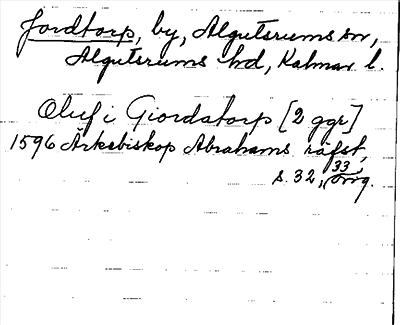 Jordtorp, by, Algutsrums sn,
Algutsrums hd, Kalmar l.
Oluf i Giordatorp [2 ggr]
1596 Ärkebiskop Abrahams räfst,
s. 32, 33 orig.